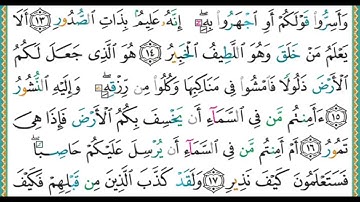 وَأَسِرُّوا۟ قَوْلَكُمْ أَوِ ٱجْهَرُوا۟ بِهِۦٓ ۖ إِنَّهُۥ عَلِيمٌۢ بِذَاتِ ٱلصُّدُورِ ﴿١٣﴾ أَلَا
يَعْلَمُ مَنْ خَلَقَ وَهُوَ ٱللَّطِيفُ ٱلْخَبِيرُ ﴿١٤﴾ هُوَ ٱلَّذِى جَعَلَ لَكُمُ
ٱلْأَرْضَ ذَلُولًا فَٱمْشُوا۟ فِى مَنَاكِبِهَا وَكُلُوا۟ مِن رِّزْقِهِۦ ۖ وَإِلَيْهِ ٱلنُّشُورُ
﴿١٥﴾ ءَأَمِنتُم مَّن فِى ٱلسَّمَآءِ أَن يَخْسِفَ بِكُمُ ٱلْأَرْضَ فَإِذَا هِىَ
تَمُورُ ﴿١٦﴾ أَمْ أَمِنتُم مَّن فِى ٱلسَّمَآءِ أَن يُرْسِلَ عَلَيْكُمْ حَاصِبًا ۖ
فَسَتَعْلَمُونَ كَيْفَ نَذِيرِ ﴿١٧﴾ وَلَقَدْ كَذَّبَ ٱلَّذِينَ مِن قَبْلِهِمْ فَكَيْفَ